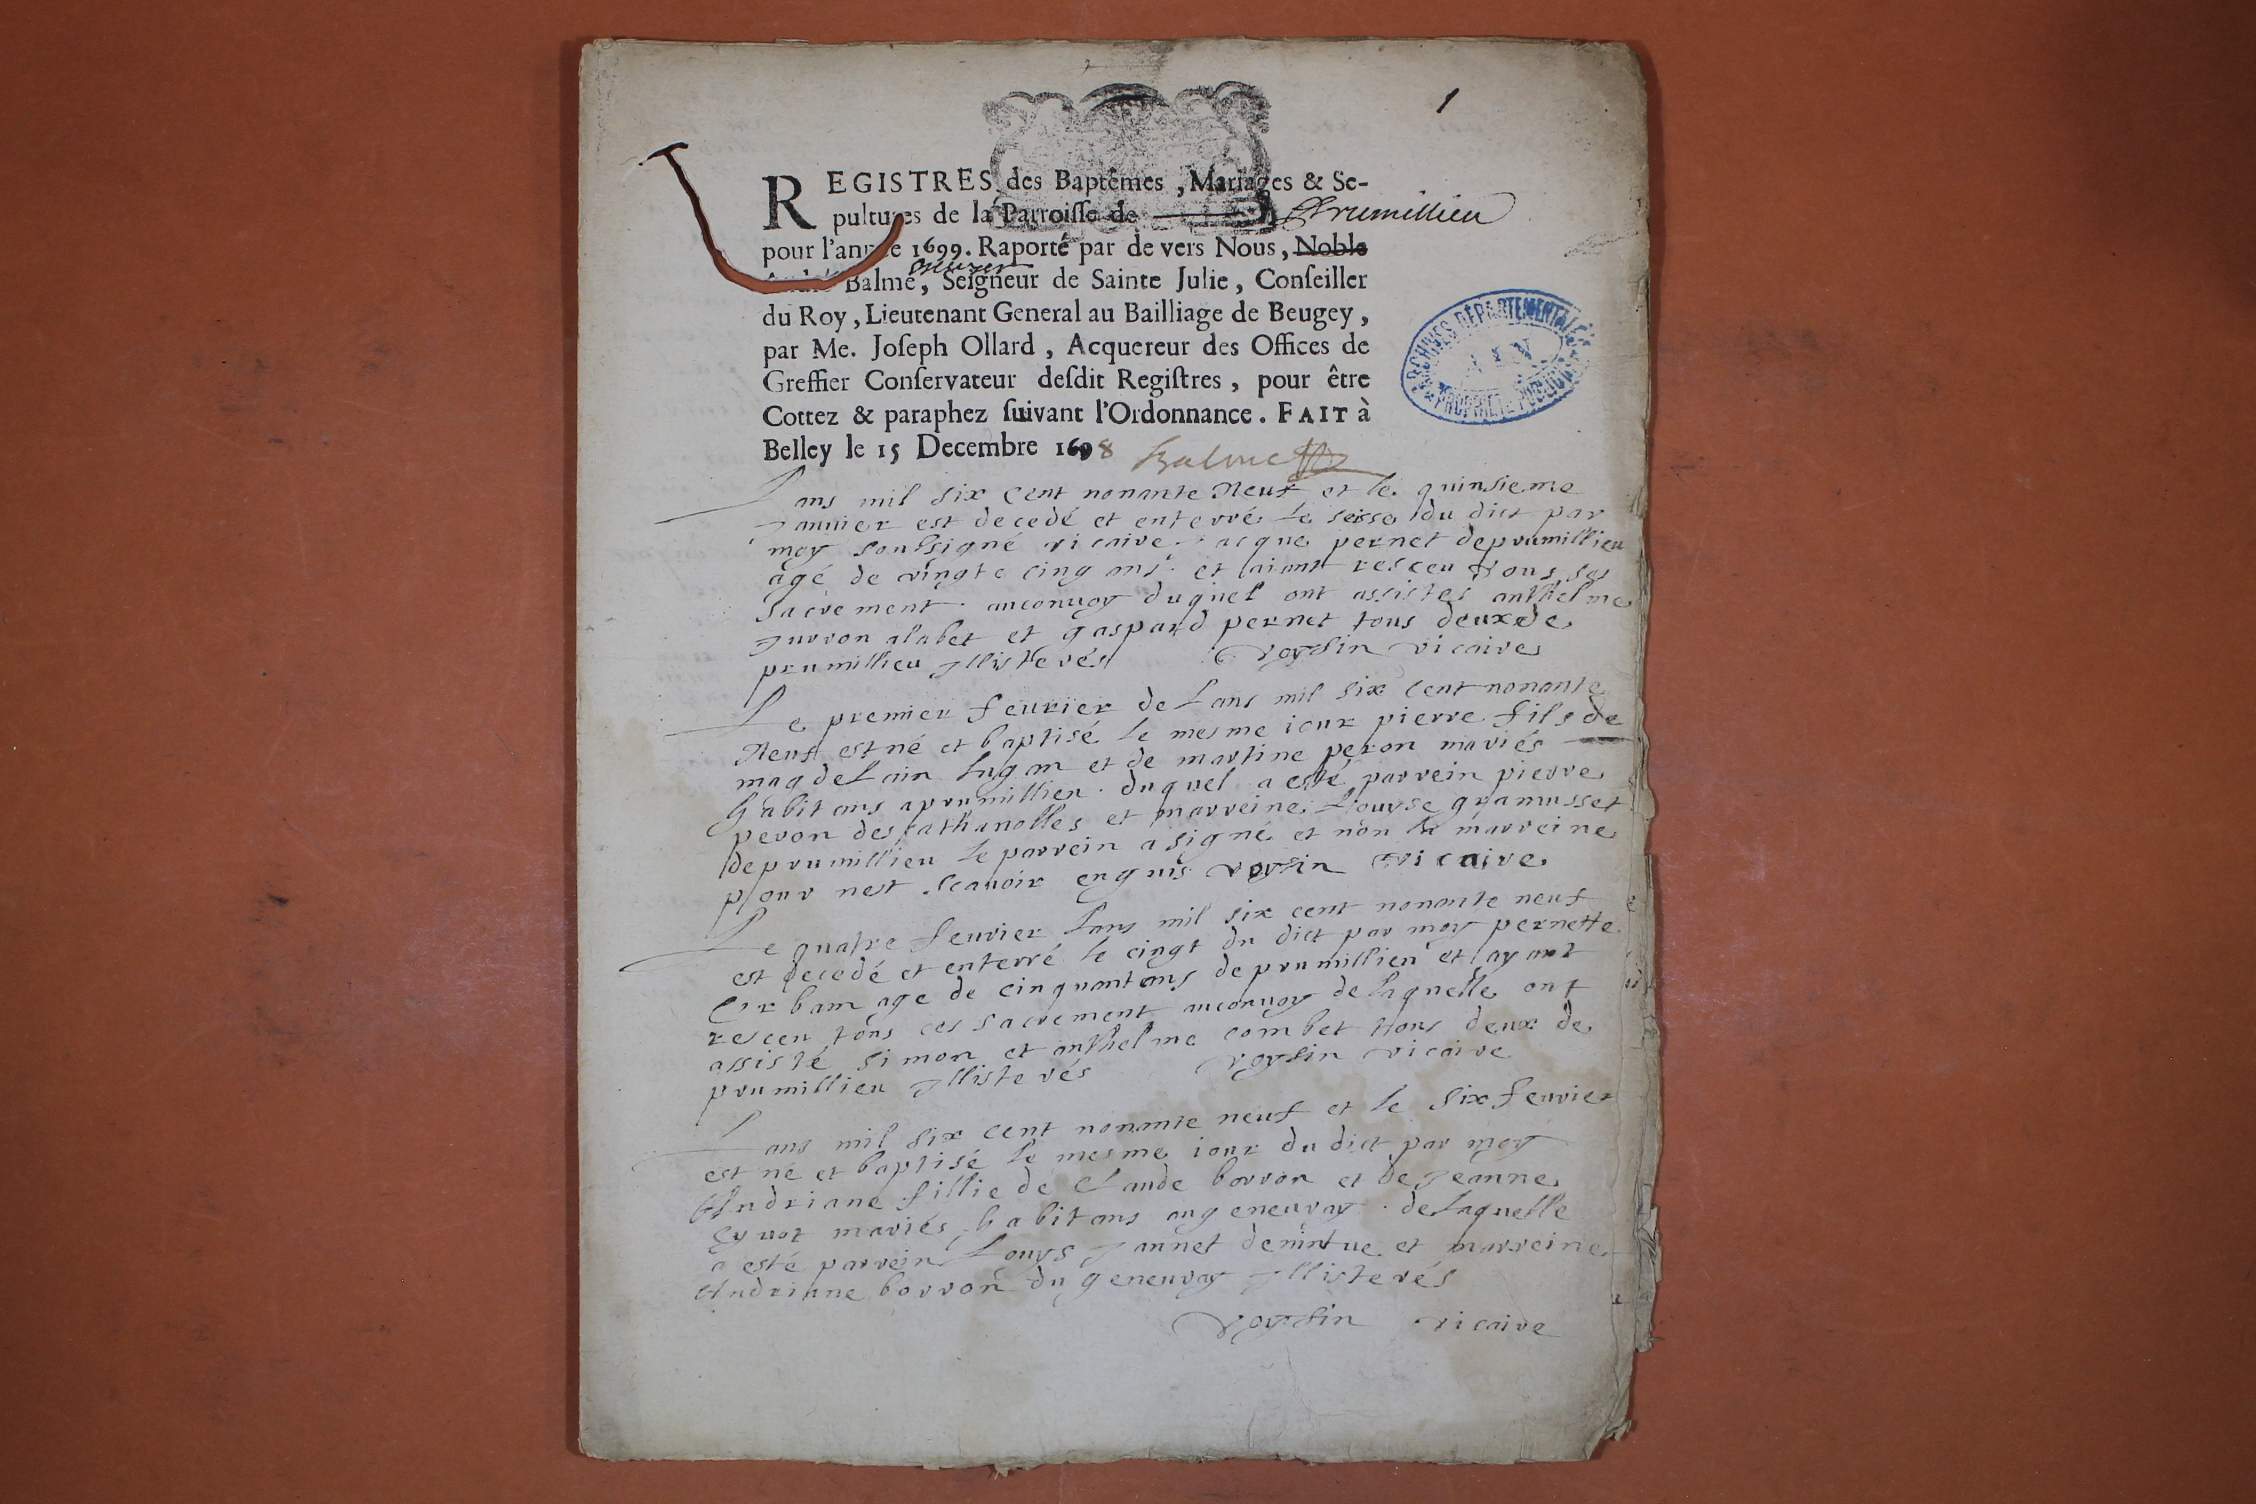 1
REGISTRES des Baptêmes, Mariages & Se-
pultures de la Parroisse de Prumillieu
pour l'année 1699. Raporté par de vers Nous, Noble
Balme, Seigneur de Sainte Julie, Conseiller
du Roy, Lieutenant General au Bailliage de Beugey,
par Me. Joseph Ollard, Acquereur des Offices de
Greffier Conservateur desdit Registres, pour être
Cottez & paraphez suivant l'Ordonnance. FAIT à
Belley le 15 Decembre 1698 Balme
ARCHIVES DÉPARTEMENTALES
AIN
PROPRIÉTÉ PUBLIQUE
Lans mil six cent nonante Neuf et le quinsieme
Januier est decedé et enterré le seisse du dict par
moy soubsigné vicaire Jacque pernet deprumillieu
agé de vingte cinq ans et aiant resceu tous ses
sacrement auconuoy duquel ont assistés anthelme
Jurron alabet et gaspard pernet tous deux de
prumillieu Jllisterés Voysin vicaire
Le premier feurier de Lans mil six Cent nonante
Neuf est né et baptisé le mesme iour pierre fils de
magdelain Lugan et de martine peron mariés
habitans aprumillieu duquel a esté parrein pierre
peron des et marreine Louyse gramusset
deprumillieu le parrein a signé et non la marreine
pour nest scauoir enquis voysin vicaire
Le quatre feurier Lans mil six cent nonante neuf
est decedé et enterré le cinqt du dict par moy pernette
Curbam age de cinquantans de prumillieu et ayant
resceu tous ces sacrement auconuoy de laquelle ont
assisté simon et anthelme combet tous deux de
prumillieu Jllisterés voysin vicaire
Lans mil six cent nonante neuf et le six feurier
est né et baptisé le mesme iour du dict par moy
Andriane fillie de Claude borron et de Jeanne
Cyuot mariés habitans augeneuray delaquelle
a esté parrein Louys Jannet demintue et marreine
Andriane borron du geneuray Jllisterés
voysin vicaire